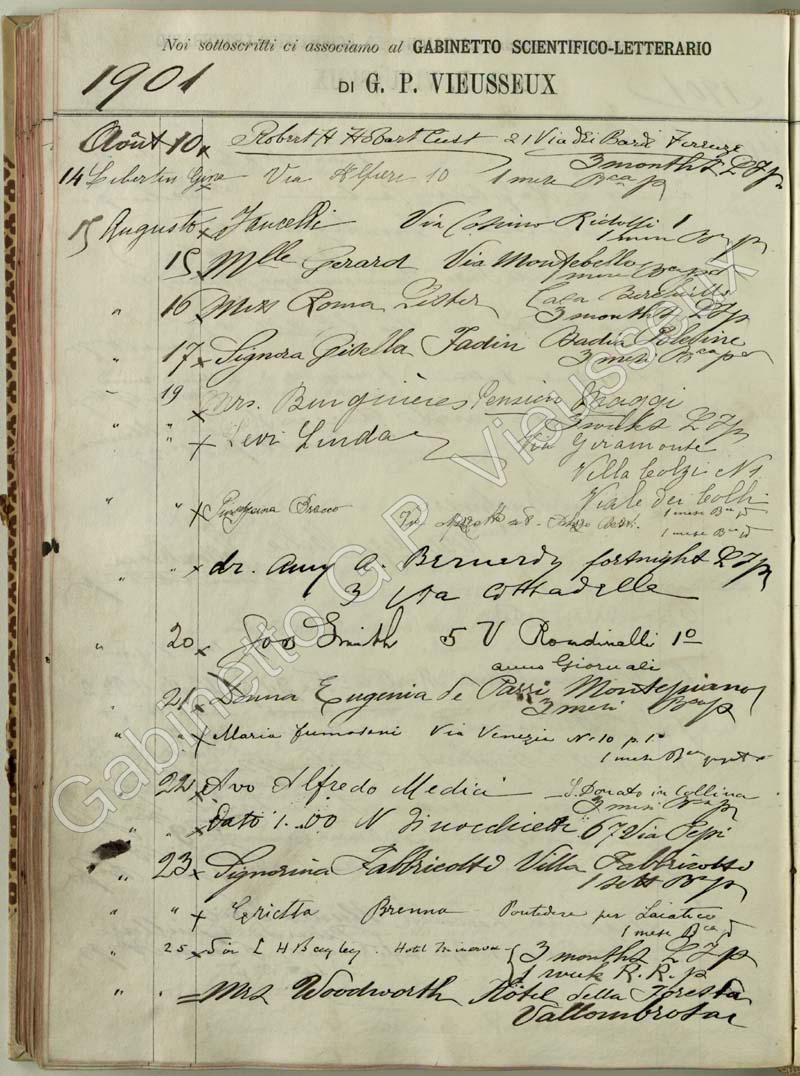 Noi sottoscritti ci associamo al GABINETTO SCIENTIFICO-LETTERARIO
DI G. P. VIEUSSEUX
1901
Août 10 x Robert H Hobart Cust 21 Via dei Bardi Firenze
3 months L Jp
14 Via Alfieri 10 1 mese Bca p
15 Augusto x Fancelli Via Cosimo Ridolfi 1
1 mese Bca p
15 Mlle Gerard Via Montebello
1 mese Bca
" 16 x Miss Roma Lister Casa
3 months L Jp
" 17 x Signora Gisella Fadin Badia Polesine
3 mesi Bca
" 19 x Mrs. Burguières Pension Maggi
3 weeks L Jp
" " x Levi Linda Via Giramonte
Villa No 1
Viale dei Colli
" " x
1 mese Bca
1 mese Bca
" " x dr. Amy A. Bernardy fortnight L Jp
3 Via
" 20 x Joo Smith 5 V Rondinelli 1o
anno Giornali
" 21 x Donna Eugenia de Passi Montepiano
3 mesi Bca p
" " x Maria Fumasoni Via Venezia No 10 p. 1o
1 mese Bca
22 x Avo Alfredo Medici S. Donato in Collina
3 mesi Bca p
" " N Finocchietti 67 Via
" 23 x Signorina Fabbricotti Villa Fabbricotti
1 sett Bca p
" " x Brenna Pontedera per Laiatico
1 mese Bca
" 25 x L H Bagley. Hotel Minerva 3 months L Jp
1 week R. R. p
" " = Mrs Woodworth Hôtel della Foresta
Vallombrosa
Gabinetto G.P. Vieusseux